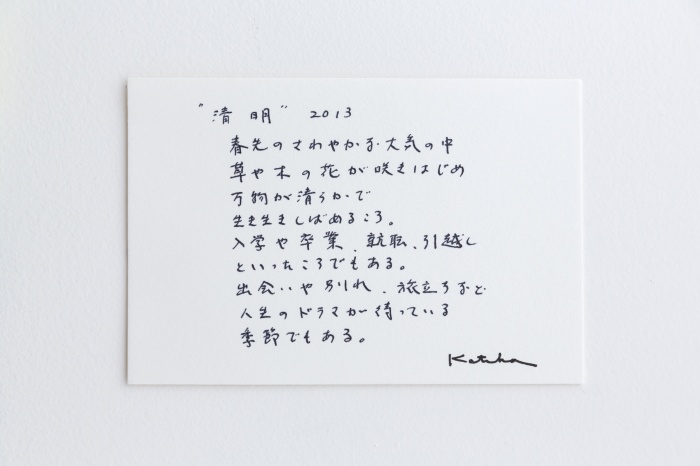 "清明" 2013
春先のさわやかな大気の中
草や木の花が咲きはじめ
万物が清らかで
生き生きしはじめるころ。
入学や卒業、就職、引越し
といったころでもある。
出会いや別れ、旅立ちなど
人生のドラマが待っている
季節でもある。